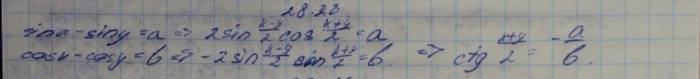 28.28
sinx - siny = a => 2sin (x-y)/2 cos (x+y)/2 = a
cosx - cosy = b => -2sin (x-y)/2 sin (x+y)/2 = b. => ctg (x+y)/2 = -a/b.